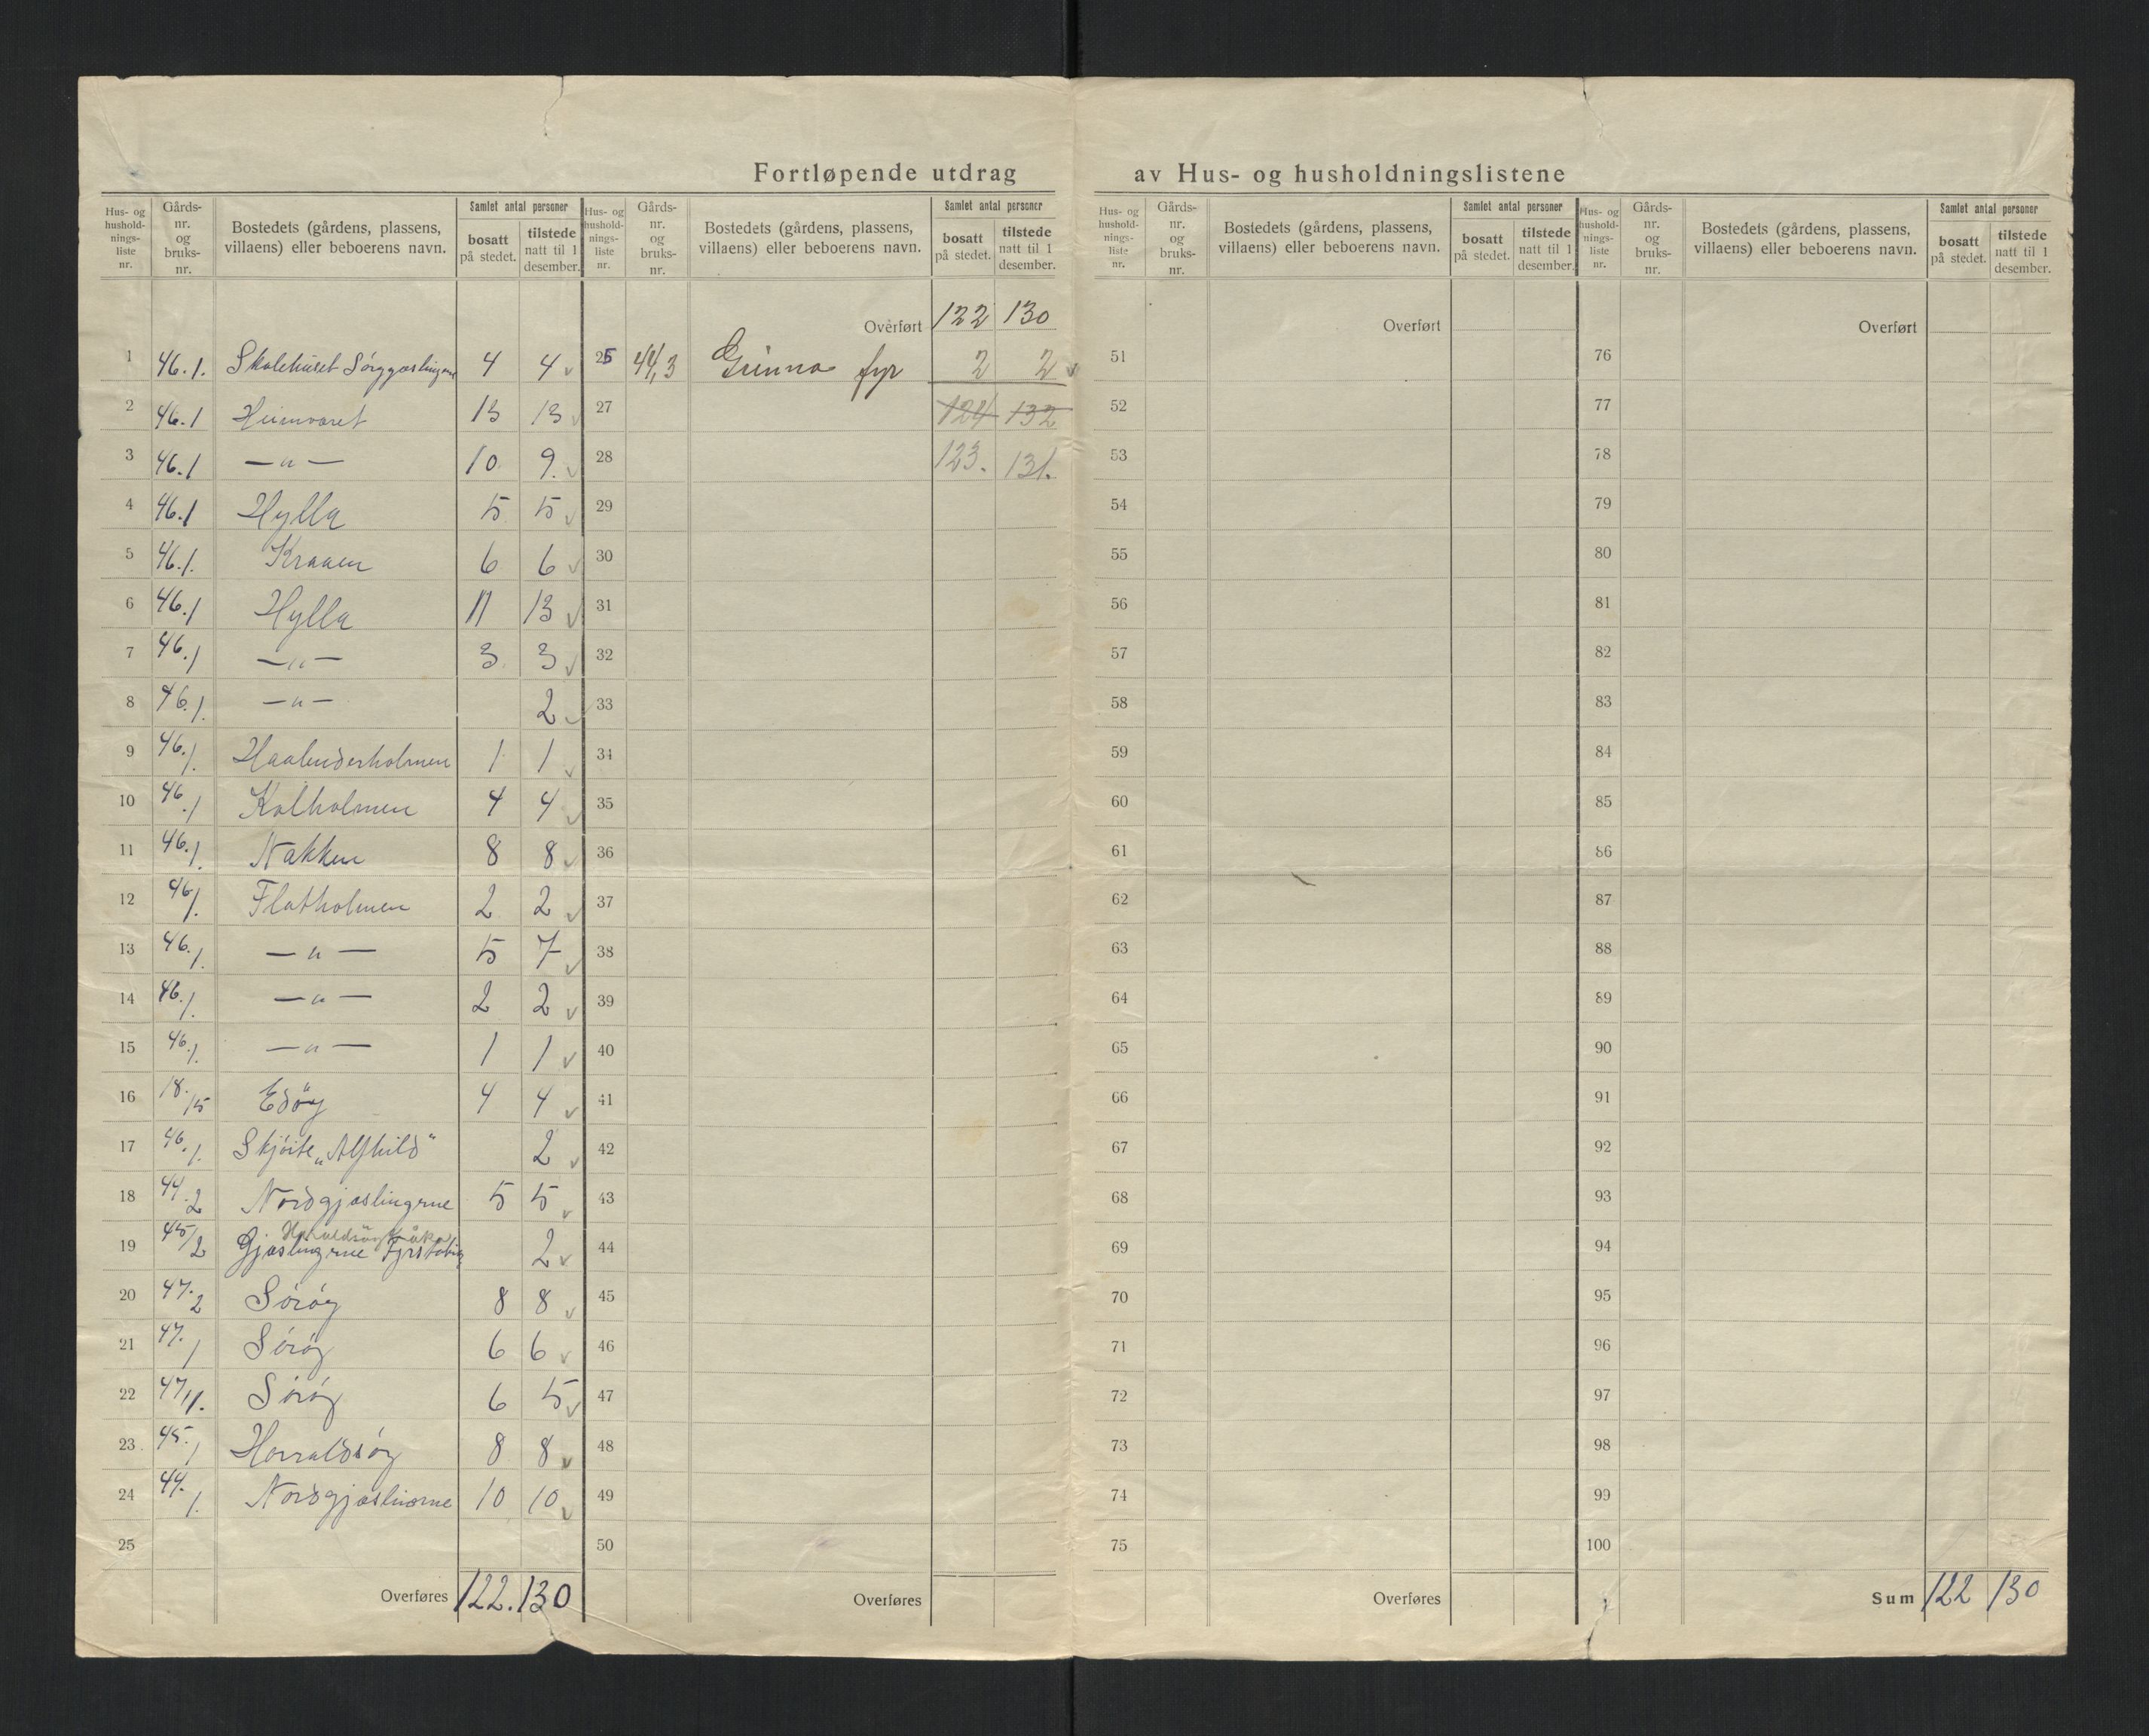 Fortløpende utdrag av Hus- og husholdningslistene
Hus- og hushold- nings- liste nr. | Gårds- nr. og bruks- nr. | Bostedets (gårdens, plassens, villaens) eller beboerens navn. | Samlet antal personer | bosatt på stedet. | tilstede natt til 1 desember.
1 46.1. Skolehuset 4 4
2 46.1 13 13
3 46.1 — " — 10 9.
4 46.1 Hylla 5 5
5 46.1. Kraaen 6 6
6 46.1 Hylla 11 13
7 46.1 — " — 3 3
8 46.1. — " — 2
9 46.1. 1 1
10 46.1 Kalholmen 4 4
11 46.1. Nakken 8 8
12 46/1. Flatholmen 2 2
13 46.1. — " — 5 7
14 46.1. — " — 2 2
15 46.1. — " — 1 1
16 18./15 Edöy 4 4
17 46.1. Skjöite „Alfhild" 2
18 44.2 Nordgjæslingerne 5 5
19 45/2 Gjæslingerne 2
20 47.2 Söröy 8 8
21 47.1 Söröy 6 6
22 47,1. Söröy 6 5
23 45.1 8 8
24 44.1. 10 10
25
Overføres 122. 130
Hus- og hushold- nings- liste nr. | Gårds- nr. og bruks- nr. | Bostedets (gårdens, plassens, villaens) eller beboerens navn. | Samlet antal personer | bosatt på stedet. | tilstede natt til 1 desember.
Overført 122 130
25 44,3 Grinna fyr 2 2
27 124 132
28 123. 131.
29
30
31
32
33
34
35
36
37
38
39
40
41
42
43
44
45
46
47
48
49
50
Overføres
Hus- og hushold- nings- liste nr. | Gårds- nr. og bruks- nr. | Bostedets (gårdens, plassens, villaens) eller beboerens navn. | Samlet antal personer | bosatt på stedet. | tilstede natt til 1 desember.
Overført
51
52
53
54
55
56
57
58
59
60
61
62
63
64
65
66
67
68
69
70
71
72
73
74
75
Overføres
Hus- og hushold- nings- liste nr. | Gårds- nr. og bruks- nr. | Bostedets (gårdens, plassens, villaens) eller beboerens navn. | Samlet antal personer | bosatt på stedet. | tilstede natt til 1 desember.
Overført
76
77
78
79
80
81
82
83
84
85
86
87
88
89
90
91
92
93
94
95
96
97
98
99
100
Sum 122 130